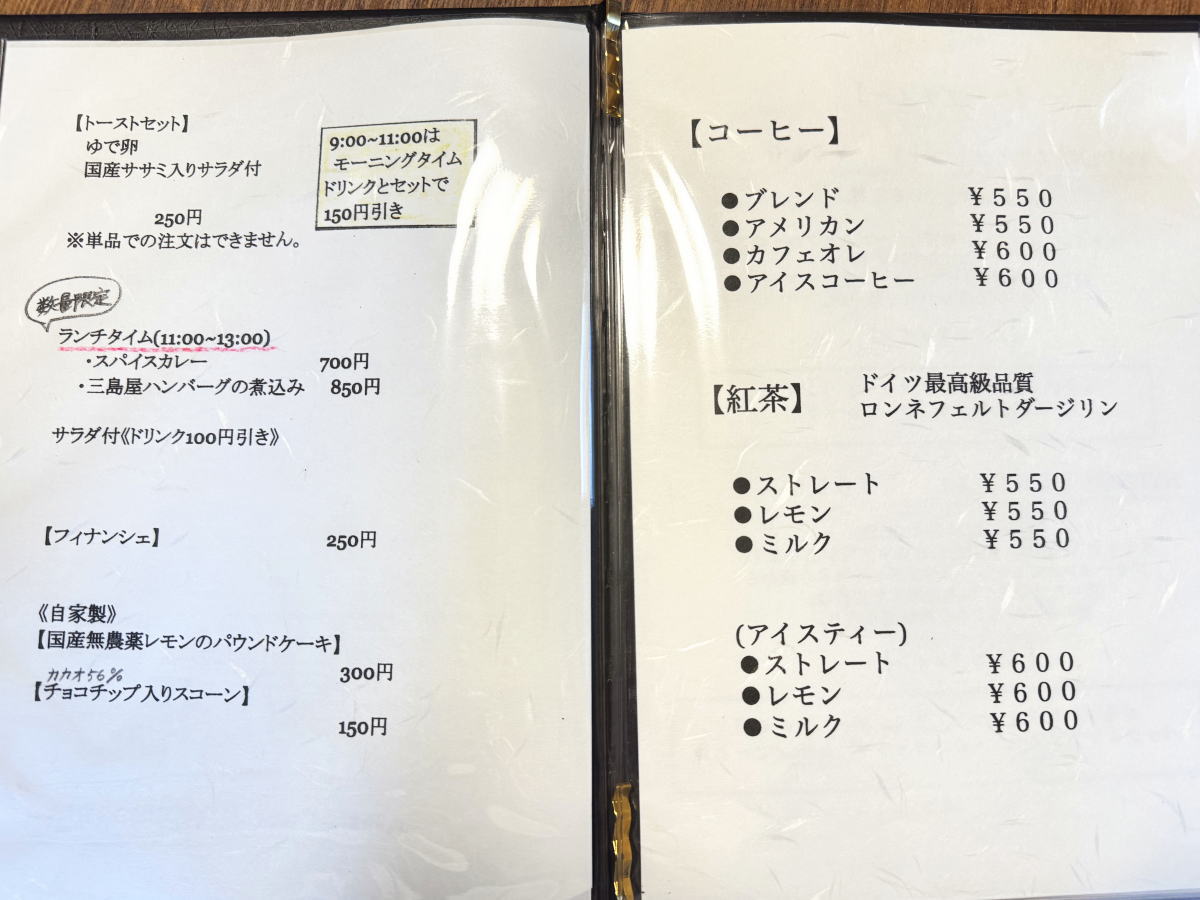 【トーストセット】
ゆで卵
国産ササミ入りサラダ付
250円
※単品での注文はできません。
9:00~11:00は
モーニングタイム
ドリンクとセットで
150円引き
数量限定
ランチタイム(11:00~13:00)
・スパイスカレー 700円
・三島屋ハンバーグの煮込み 850円
サラダ付《ドリンク100円引き》
【フィナンシェ】 250円
《自家製》
【国産無農薬レモンのパウンドケーキ】
300円
カカオ56%
【チョコチップ入りスコーン】
150円
【コーヒー】
●ブレンド ¥550
●アメリカン ¥550
●カフェオレ ¥600
●アイスコーヒー ¥600
【紅茶】
ドイツ最高級品質
ロンネフェルトダージリン
●ストレート ¥550
●レモン ¥550
●ミルク ¥550
(アイスティー)
●ストレート ¥600
●レモン ¥600
●ミルク ¥600